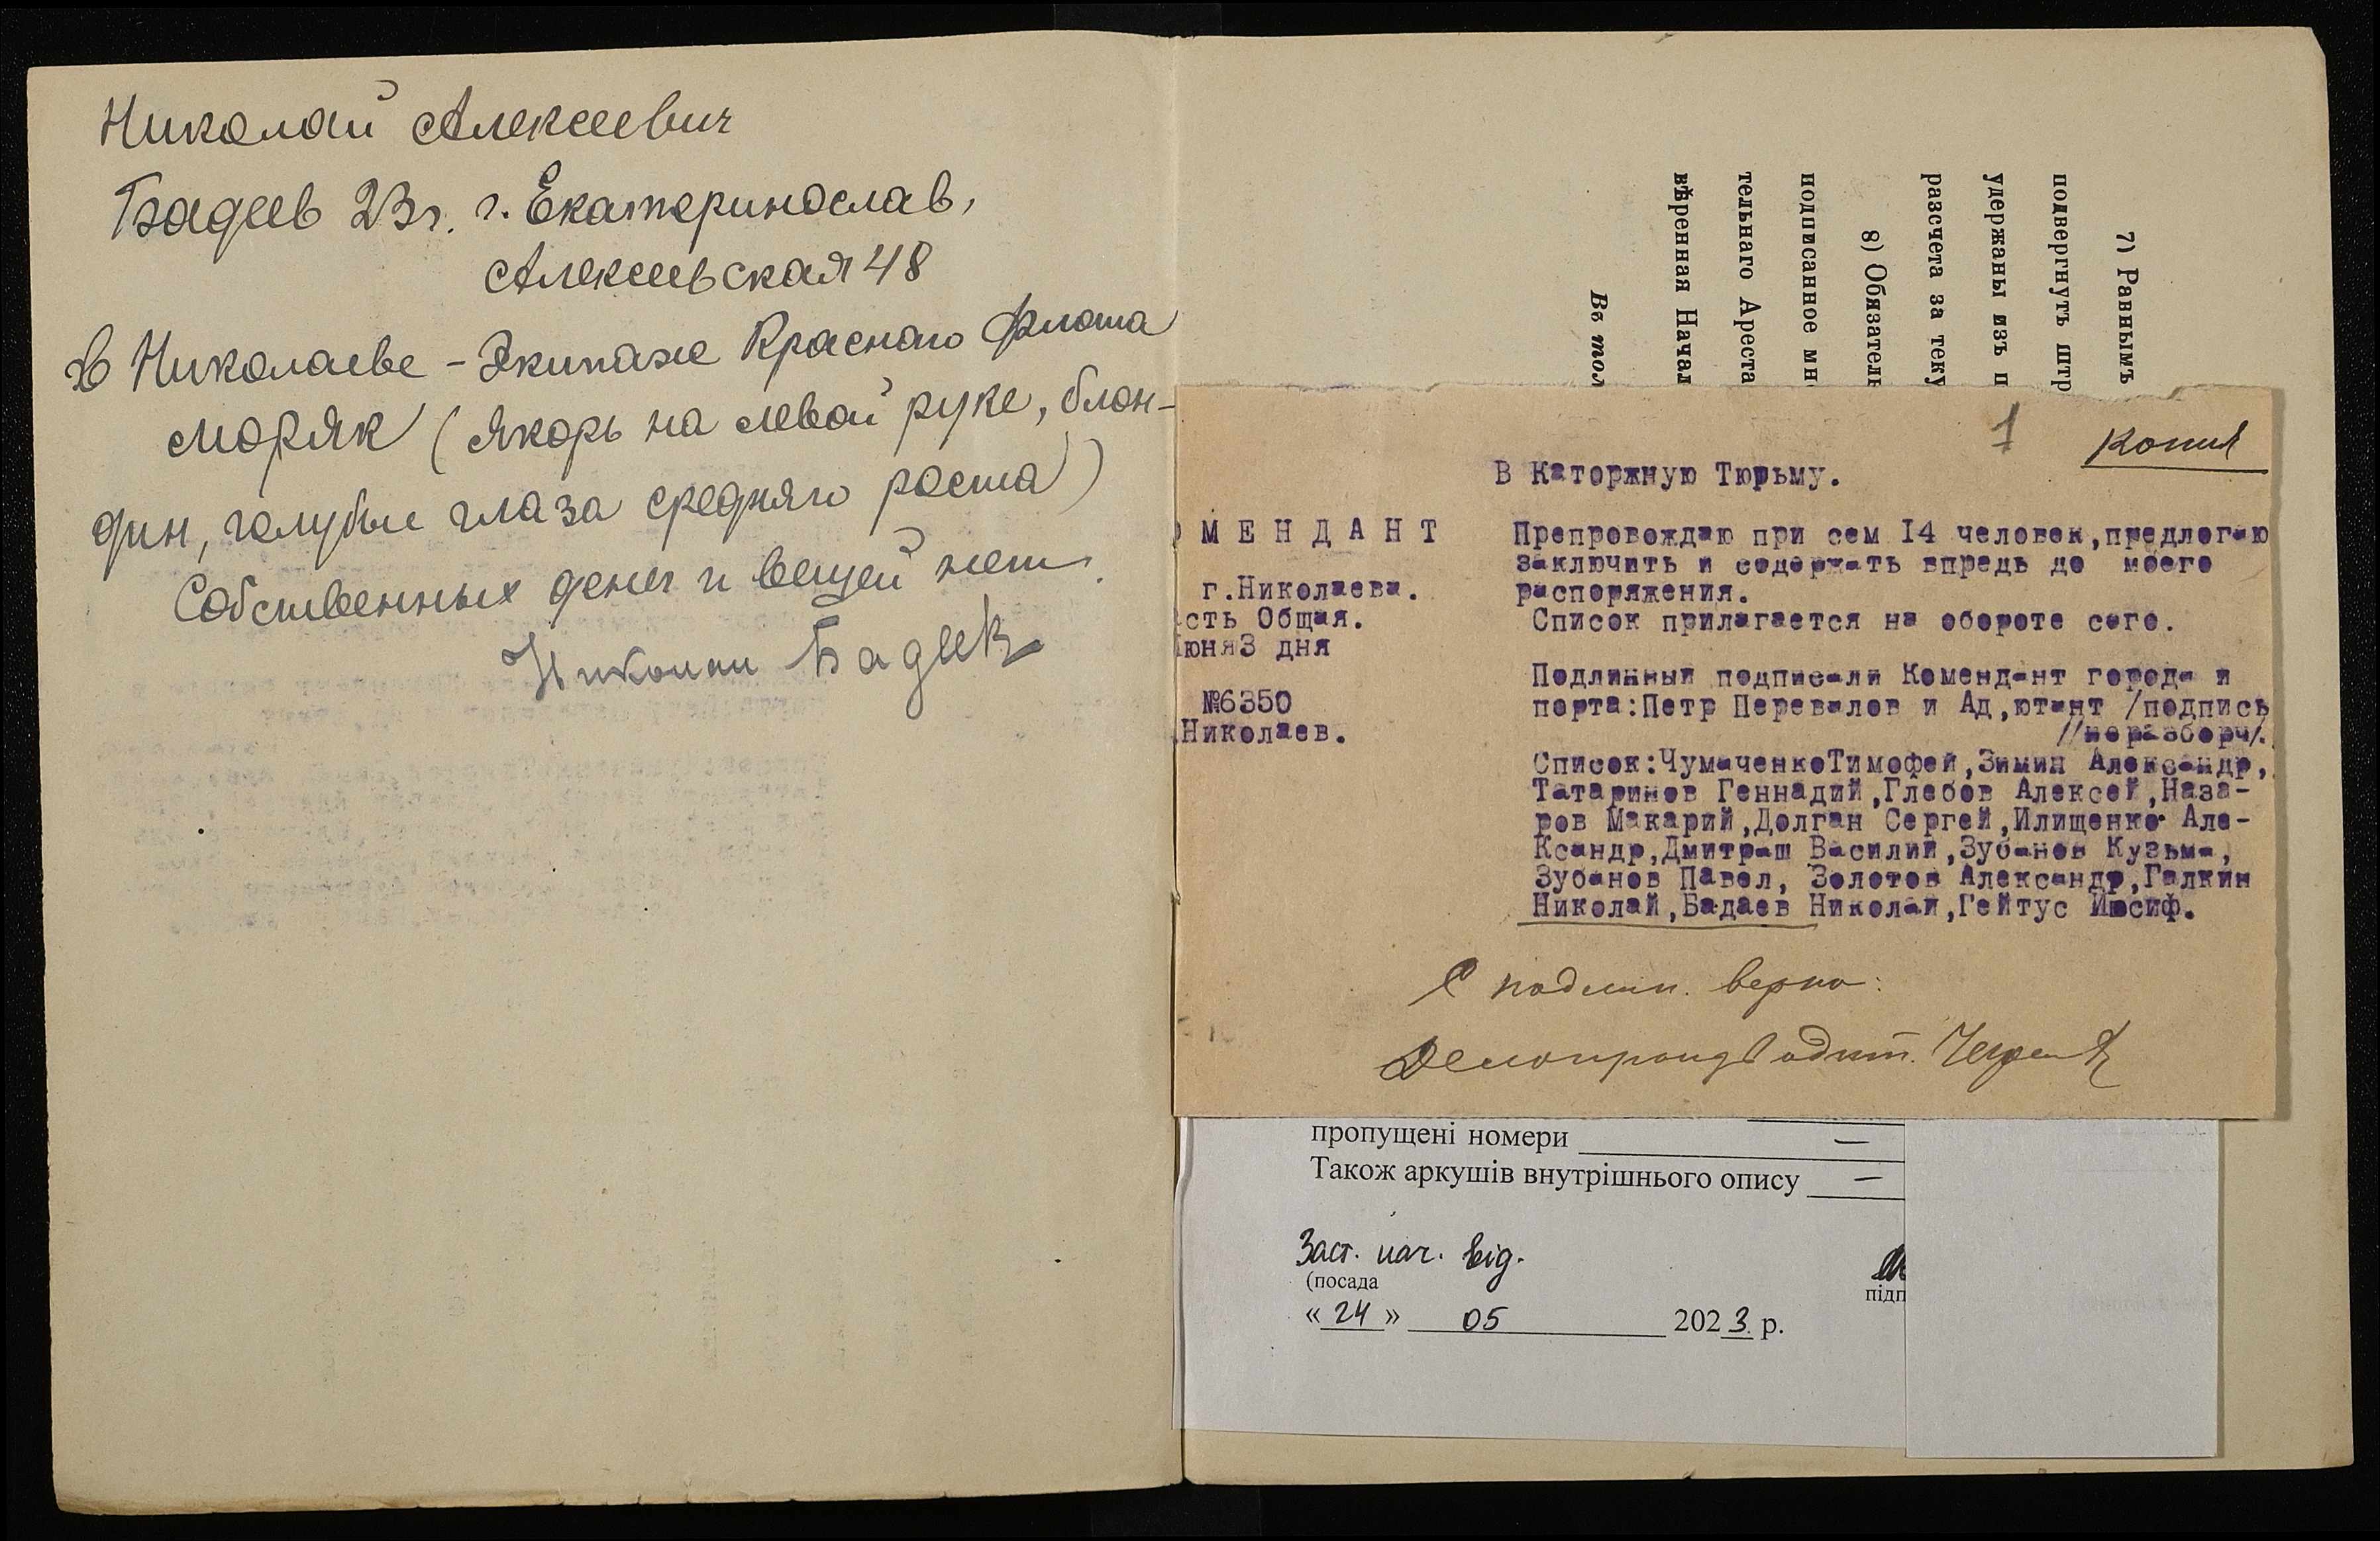 Николай Алексеевич
Бадеев 23 г. г. Екатеринослав,
Алексеевская 48
В Николаеве - Экипаже Красного Флота
моряк (якорь на левой руке, блон-
дин, голубые глаза среднего роста)
Собственных денег и вещей нет.
Николай Бадеев
7) Равнымъ
подвергнуть штр
удержаны изъ п
разсчета за теку
8) Обязатель
подписанное мн
тельнаго Ареста
вѣренная Начал
Въ тол
1 Копия
В Каторжную Тюрьму.
ОМЕНДАНТ
г.Николаева.
сть Общая.
юня3 дня
№6350
.Николаев.
Препровождаю при сем I4 человек,предлогаю
заключить и содержать впредь до моего
распоряжения.
Список прилагается на обороте сего.
Подлинный подписали Комендант города и
порта:Петр Перевалов и Ад,ютант /подпись
//неразборч/.
Список:ЧумаченкоТимофей,Зимин Александр,
Татаринов Геннадий,Глебов Алексей,Наза-
ров Макарий,Долган Сергей,Илищенко Але-
Ксандр,Дмитраш Василий,Зубанов Кузьма,
Зубанов Павел, Золотов Александр,Галкин
Николай,Бадаев Николай,Гейтус Иосиф.
С подлин. верно:
Делопроизводит.
пропущені номери —
Також аркушів внутрішнього опису —
Заст. нач. від.
(посада
підп
« 24 » 05 2023 р.